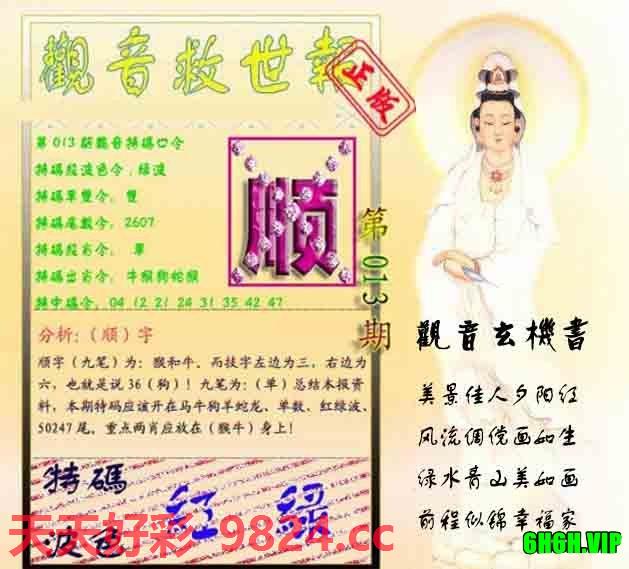 觀音救世報
正版
第013期觀音特碼口令
特碼段波色令,綠波
特碼單雙令,雙
特碼尾數令,2607
特碼段肖令,單
特碼出肖令:牛猴狗蛇猴
特中碼令,04 12 21 24 31 35 42 47
順
第013期
分析:(顺)字
顺字(九笔)为:猴和牛。而技字左边为三,右边为
六,也就是说36(狗)!九笔为:(单)总结本报资
料,本期特码应该开在马牛狗羊蛇龙、单数、红绿波、
50247尾,重点两肖应放在(猴牛)身上!
特碼
波色
紅 綠
觀音玄機書
美景佳人夕阳红
风流倜傥画如生
绿水青山美如画
前程似锦幸福家
天天好彩 9824.cc
6H6H.VIP